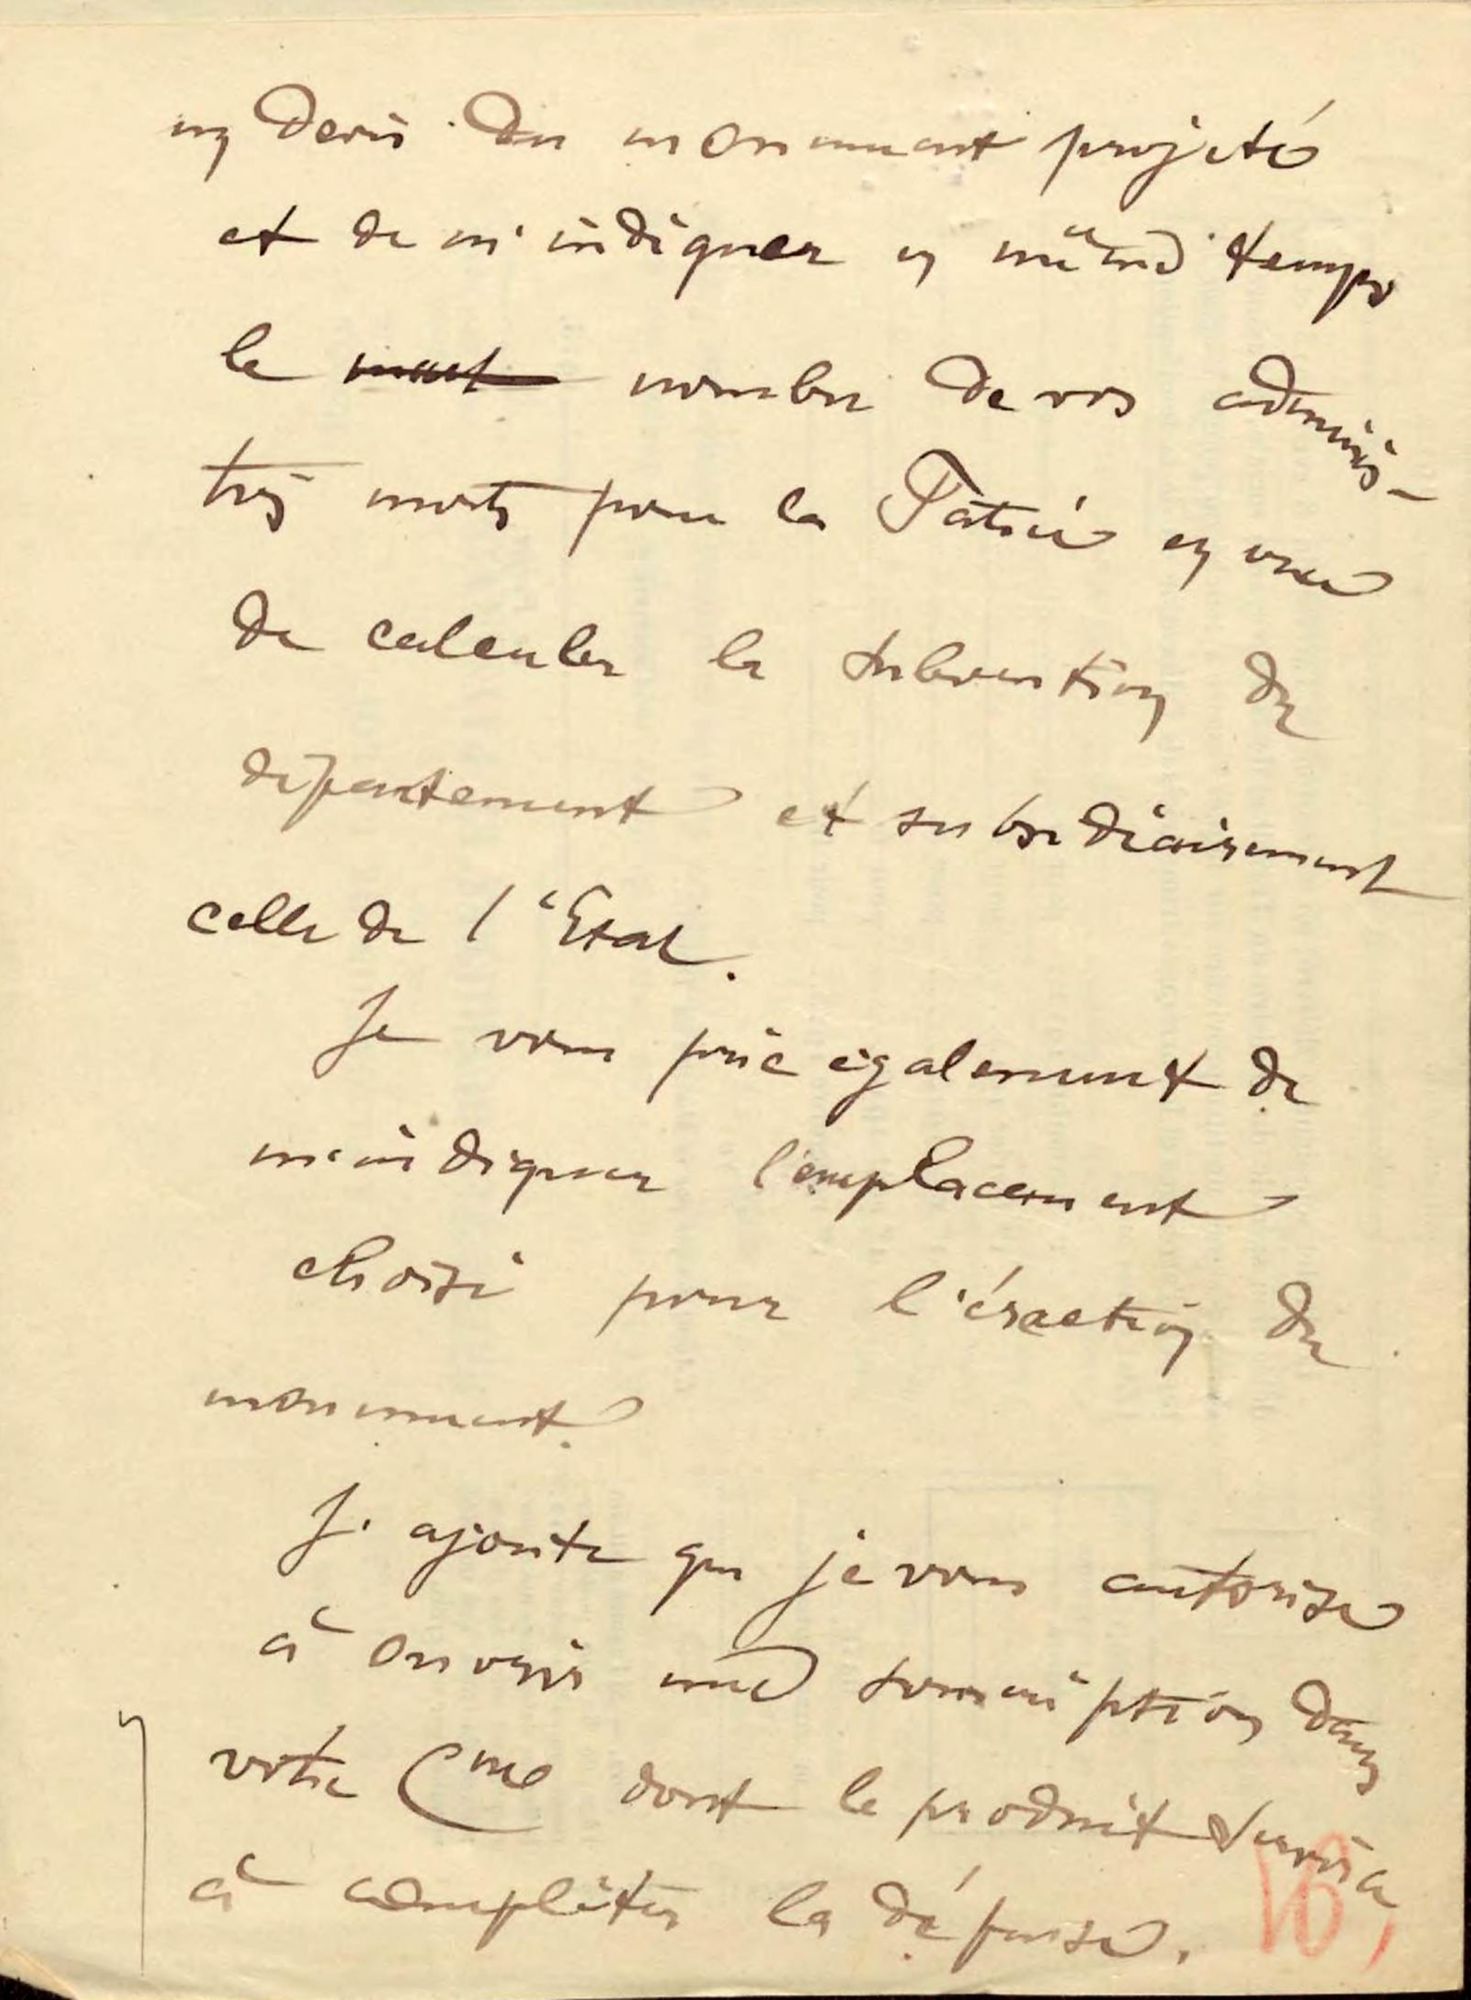 un devis du monument projeté
et de m'indiquer en même temps
le nombre de vos adminis-
trés morts pour la Patrie en vue
de calculer la subvention du
département et subsidiairement
celle de l'Etat.
Je vous prie également de
m'indiquer l'emplacement
choisi pour l'érection du
monument.
J'ajoute que je vous autorise
à ouvrir une souscription dans
votre Cne dont le produit servira
à compléter la dépense.